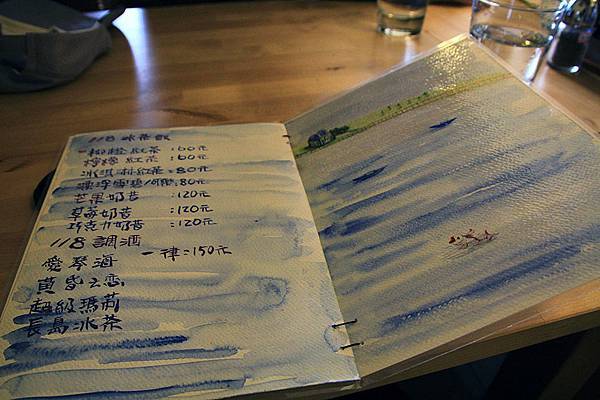 118 冰茶飲
柳橙紅茶:60元
檸檬紅茶:60元
冰淇淋紅茶:80元
漂浮雪碧/可樂:80元
芒果奶昔:120元
草莓奶昔:120元
巧克力奶昔:120元
118 調酒
愛琴海 一律:150元
黃昏之戀
超級瑪莉
長島冰茶